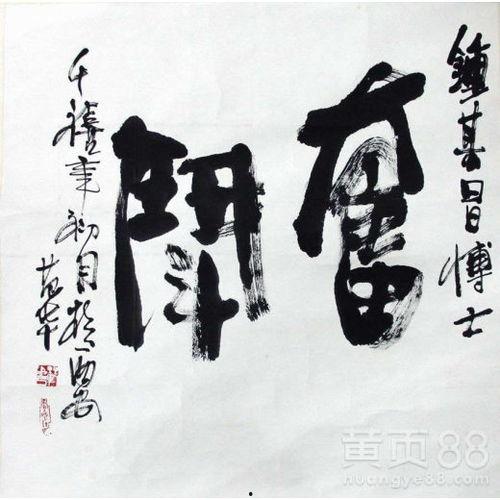 鍾基昌博士
奮鬥
千禧年初月於西安
黄页88
huangye88.com